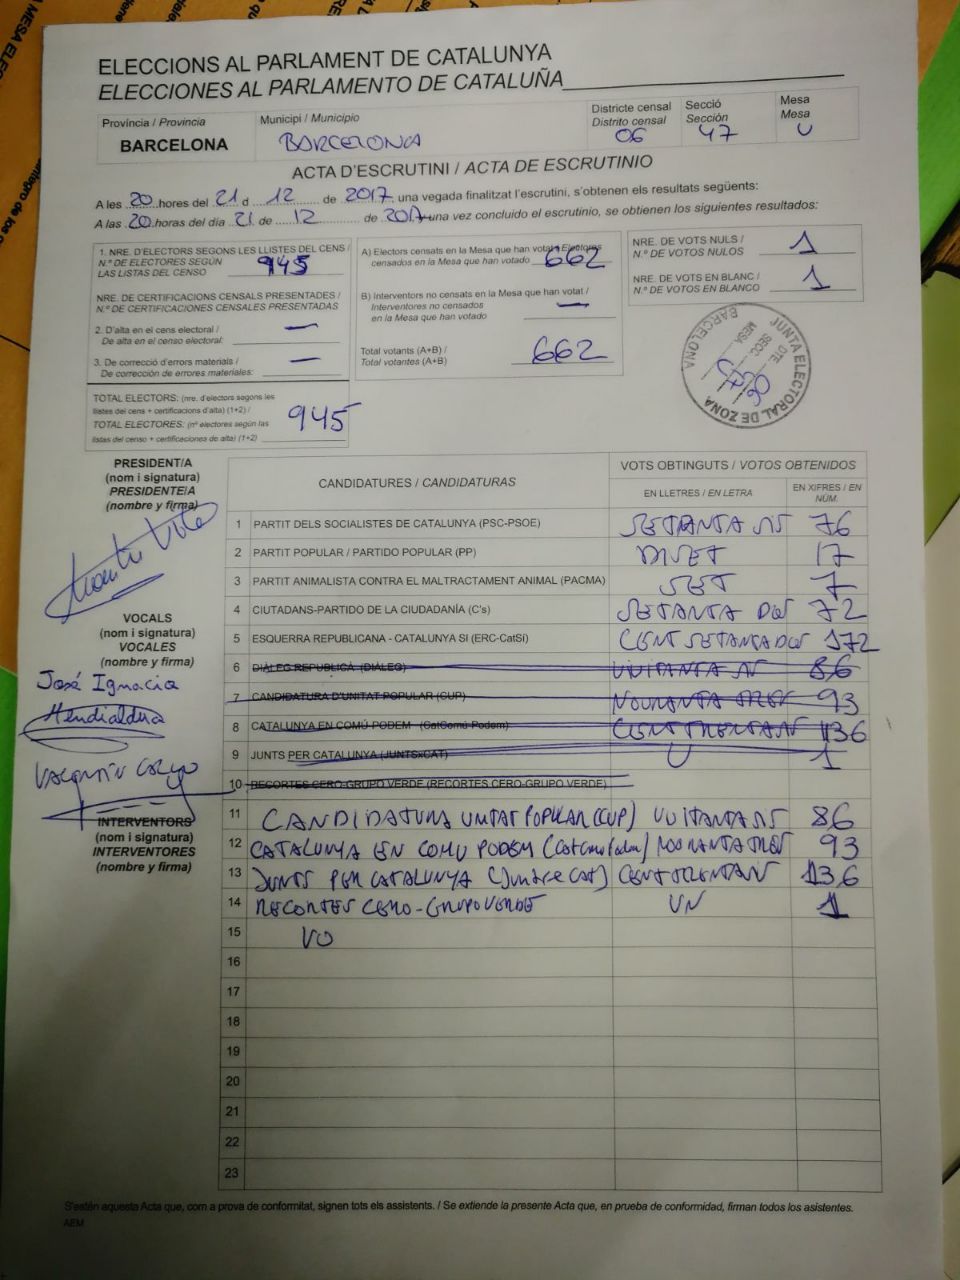 ELECCIONS AL PARLAMENT DE CATALUNYA
ELECCIONES AL PARLAMENTO DE CATALUÑA
Província / Provincia
BARCELONA
Municipi / Municipio
BARCELONA
Districte censal
Distrito censal
06
Secció
Sección
47
Mesa
Mesa
U
ACTA D'ESCRUTINI / ACTA DE ESCRUTINIO
A les 20 hores del 21 d 12 de 2017, una vegada finalitzat l'escrutini, s'obtenen els resultats següents:
A las 20 horas del día 21 de 12 de 2017 una vez concluido el escrutinio, se obtienen los siguientes resultados:
1. NRE. D'ELECTORS SEGONS LES LLISTES DEL CENS /
N.º DE ELECTORES SEGÚN
LAS LISTAS DEL CENSO 945
NRE. DE CERTIFICACIONS CENSALS PRESENTADES /
N.º DE CERTIFICACIONES CENSALES PRESENTADAS
2. D'alta en el cens electoral /
De alta en el censo electoral: —
3. De correcció d'errors materials /
De corrección de errores materiales: —
TOTAL ELECTORS: (nre. d'electors segons les
llistes del cens + certificacions d'alta) (1+2) /
TOTAL ELECTORES: (nº electores según las
listas del censo + certificaciones de alta) (1+2) 945
A) Electors censats en la Mesa que han votat / Electores
censados en la Mesa que han votado 662
B) Interventors no censats en la Mesa que han votat /
Interventores no censados
en la Mesa que han votado —
Total votants (A+B) /
Total votantes (A+B) 662
NRE. DE VOTS NULS /
N.º DE VOTOS NULOS 1
NRE. DE VOTS EN BLANC /
N.º DE VOTOS EN BLANCO 1
JUNTA ELECTORAL DE ZONA
BARCELONA
DTE.
SECC.
MESA
PRESIDENT/A
(nom i signatura)
PRESIDENTE/A
(nombre y firma)
VOCALS
(nom i signatura)
VOCALES
(nombre y firma)
José Ignacio
Mendialdua
INTERVENTORS
(nom i signatura)
INTERVENTORES
(nombre y firma)
CANDIDATURES / CANDIDATURAS
VOTS OBTINGUTS / VOTOS OBTENIDOS
EN LLETRES / EN LETRA
EN XIFRES / EN NÚM.
1 PARTIT DELS SOCIALISTES DE CATALUNYA (PSC-PSOE) SETANTA SIS 76
2 PARTIT POPULAR / PARTIDO POPULAR (PP) DISET 17
3 PARTIT ANIMALISTA CONTRA EL MALTRACTAMENT ANIMAL (PACMA) SET 7
4 CIUTADANS-PARTIDO DE LA CIUDADANÍA (C's) SETANTA DOS 72
5 ESQUERRA REPUBLICANA - CATALUNYA SI (ERC-CatSí) CENT SETANTA DOS 172
6 DIÀLEG REPUBLICÀ (DIÀLEG) VUITANTA SIS 86
7 CANDIDATURA D'UNITAT POPULAR (CUP) NOURANTA TRES 93
8 CATALUNYA EN COMÚ PODEM (CatComú-Podem) CENT TRENTA SIS 136
9 JUNTS PER CATALUNYA (JUNTSxCAT) U 1
10 RECORTES CERO-GRUPO VERDE (RECORTES CERO-GRUPO VERDE)
11 CANDIDATURA UNITAT POPULAR (CUP) VUITANTA SIS 86
12 CATALUNYA EN COMU PODEM (CatComuPodem) NOURANTA TRES 93
13 JUNTS PER CATALUNYA (JuntsxCat) CENT TRENTA SIS 136
14 RECORTES CERO-GRUPO VERDE UN 1
15 VO
16
17
18
19
20
21
22
23
S'estén aquesta Acta que, com a prova de conformitat, signen tots els assistents. / Se extiende la presente Acta que, en prueba de conformidad, firman todos los asistentes.
AEM